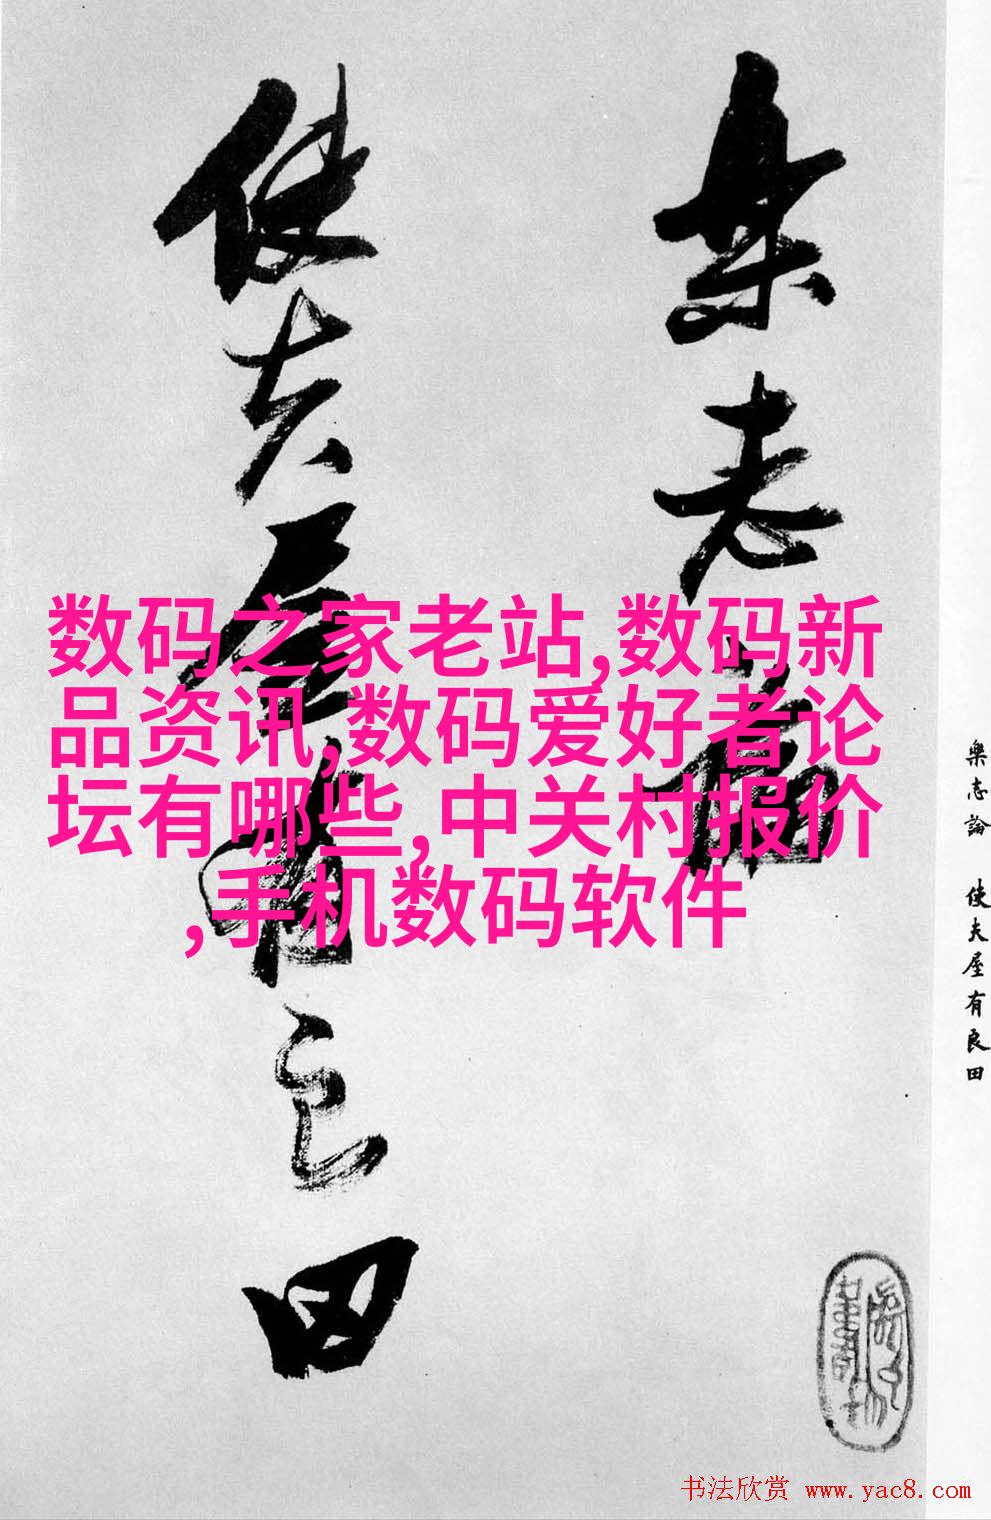 樂志論
使夫屋有良田
数码之家老站,数码新
品资讯,数码爱好者论
坛有哪些,中关村报价
,手机数码软件
樂志論 使夫屋有良田
书法欣赏 www.yac8.com